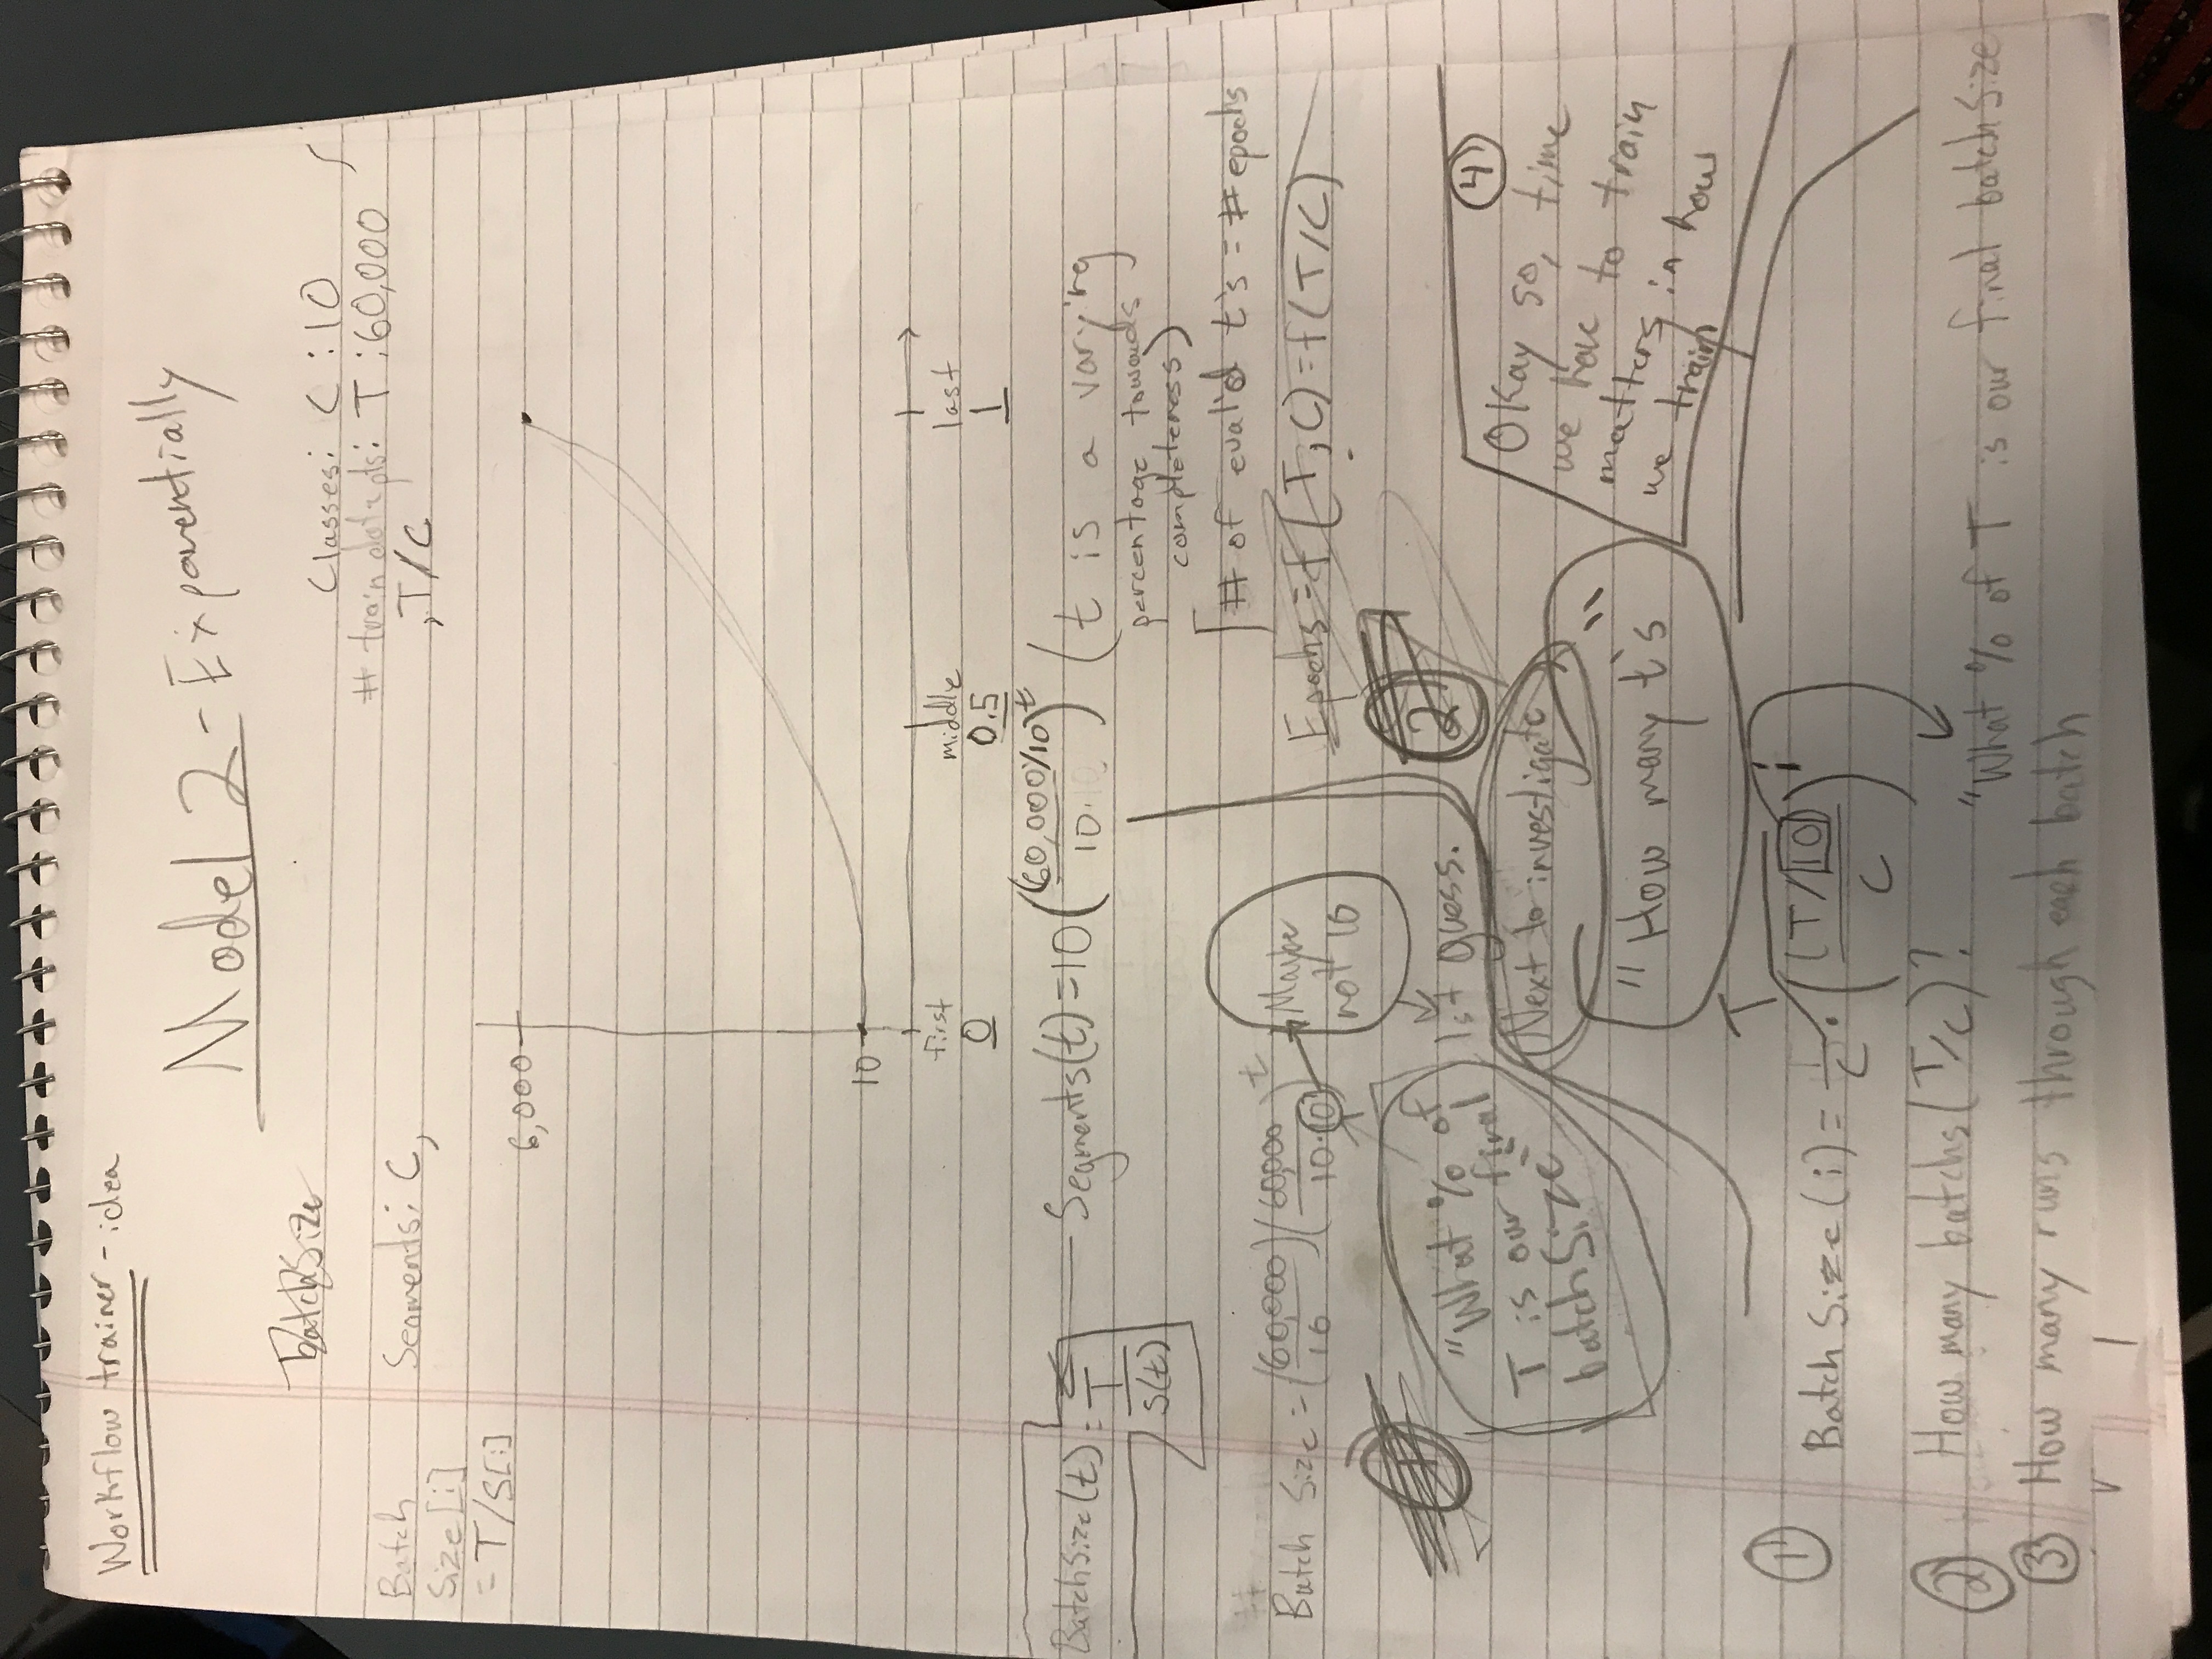 Workflow trainer - idea
Model 2 - Exponentially
BatchSize
Classes: C : 10
# train data pts: T : 60,000
Batch
Size[i]
= T/S[i]
Segments: C,
, T/C
6,000
10
first
middle
last
0
0.5
1
BatchSize(t) = T/S(t)
Segments(t) = 10 ((60,000/10)/10)^t
(t is a varying
percentage towards
completeness)
# of eval'd t's = # epochs
Batch Size = (60,000/10)(60,000/10·10)^t
Maybe
not 10
Epochs = f(T,C) = f(T/C)
1
"What % of
T is our final
batchSize"
1st guess.
2
Next to investigate
"How many t's"
4
Okay so, time
we have to train
matters in how
we train
1
Batch Size(i) = T/C · ((T/10)/C)^i
2 How many batchs (T/C)?
"What % of T is our final batchSize
3 How many runs through each batch